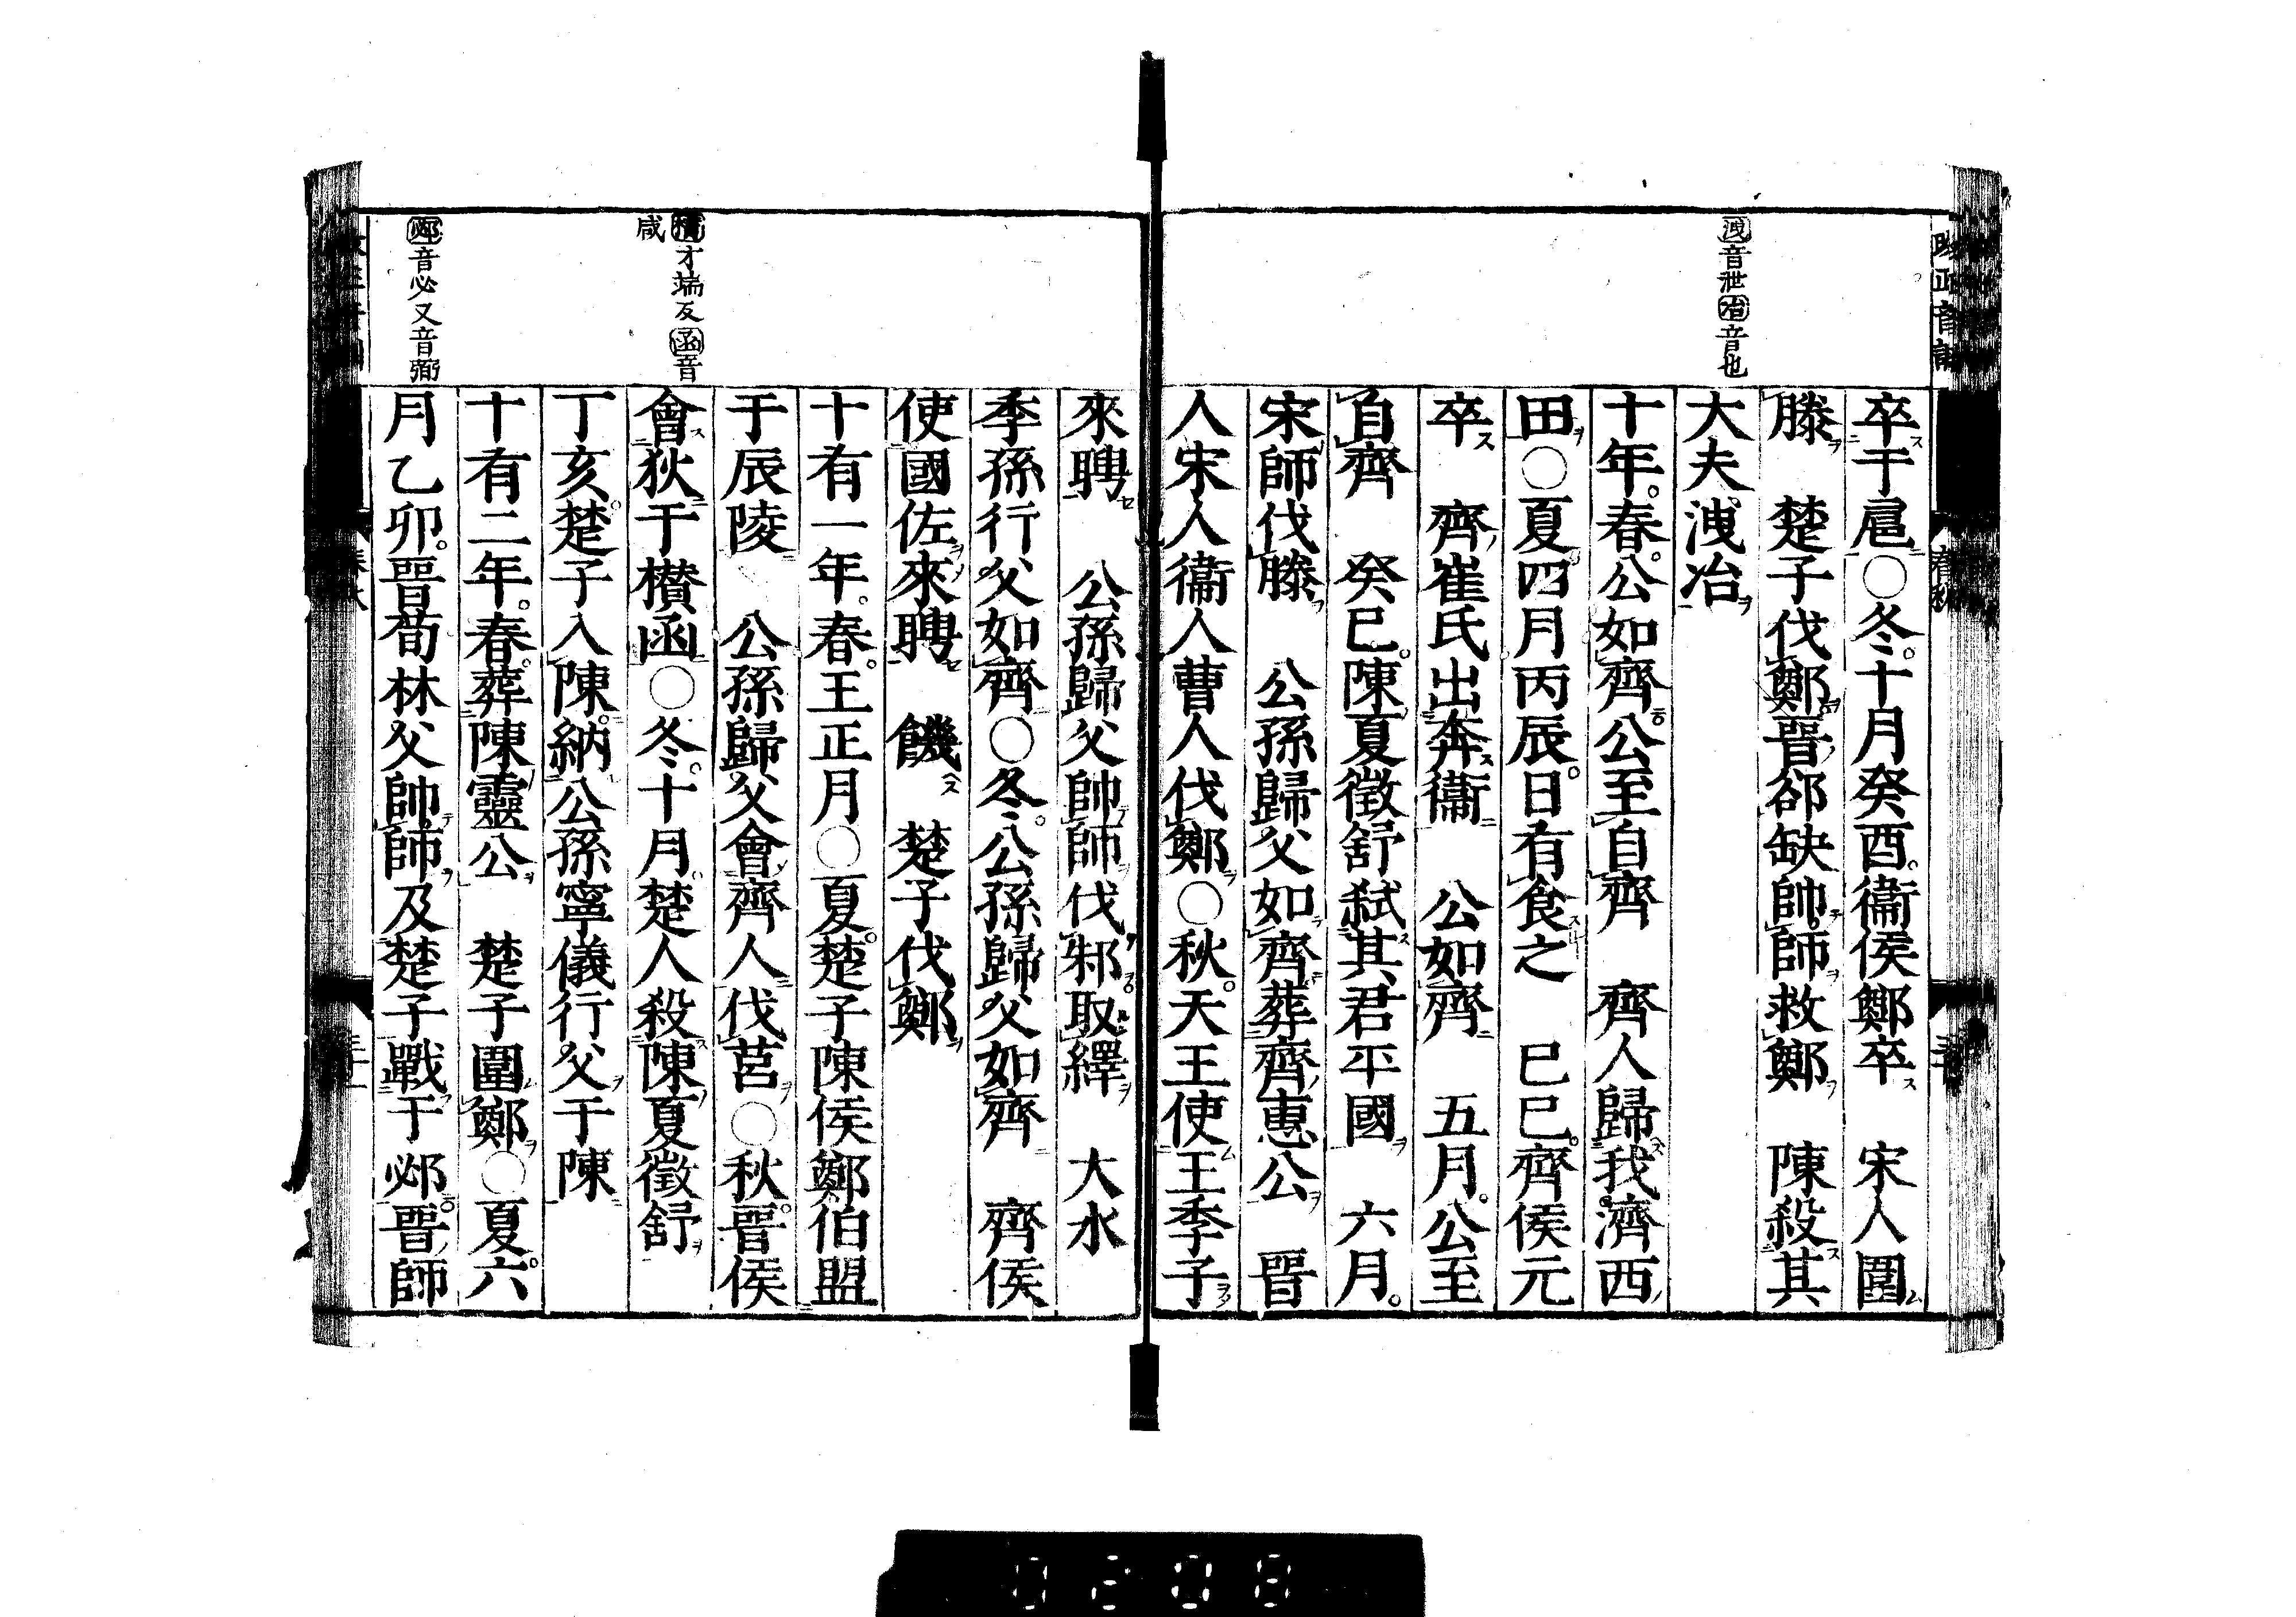 洩音泄冶音也
卒于扈○冬十月癸酉衞侯鄭卒　宋人圍
滕　楚子伐鄭晉郤缺帥師救鄭　陳殺其
大夫洩冶
十年春公如齊公至自齊　齊人歸我濟西
田○夏四月丙辰日有食之　己巳齊侯元
卒　齊崔氏出奔衞　公如齊　五月公至
自齊　癸巳陳夏徵舒弑其君平國　六月
宋師伐滕　公孫歸父如齊葬齊惠公　晉
人宋人衞人曹人伐鄭○秋天王使王季子
來聘　公孫歸父帥師伐邾取繹　大水
季孫行父如齊○冬公孫歸父如齊　齊侯
使國佐來聘　饑　楚子伐鄭
十有一年春王正月○夏楚子陳侯鄭伯盟
于辰陵　公孫歸父會齊人伐莒○秋晉侯
會狄于欑函○冬十月楚人殺陳夏徵舒
丁亥楚子入陳納公孫寧儀行父于陳
十有二年春葬陳靈公　楚子圍鄭○夏六
月乙卯晉荀林父帥師及楚子戰于邲晉師
欑才端反函音
咸
邲音必又音弼
0208